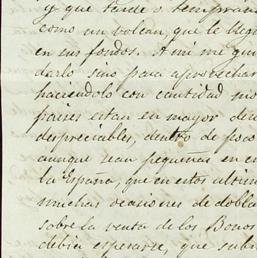 y que tarde o temprano
como un volcan, que le lleg
en sus fondos. A mi me qu
darlo sino para aprovechar
haciendolo con cantidad
paises estan en mayor
despreciables, dentro de poco
aunque sean pequeñas en
la España, que en estos ultim
muchas ocasiones de dobla
sobre la venta de los Bonos
debia esperarse, que sub